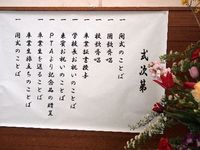 式次第
一 開式のことば
一 国歌斉唱
一 校歌斉唱
一 卒業証書授与
一 学校長お祝いのことば
一 来賓お祝いのことば
一 PTAより記念品の贈呈
一 卒業生を送ることば
一 卒業生旅立のことば
一 閉式のことば